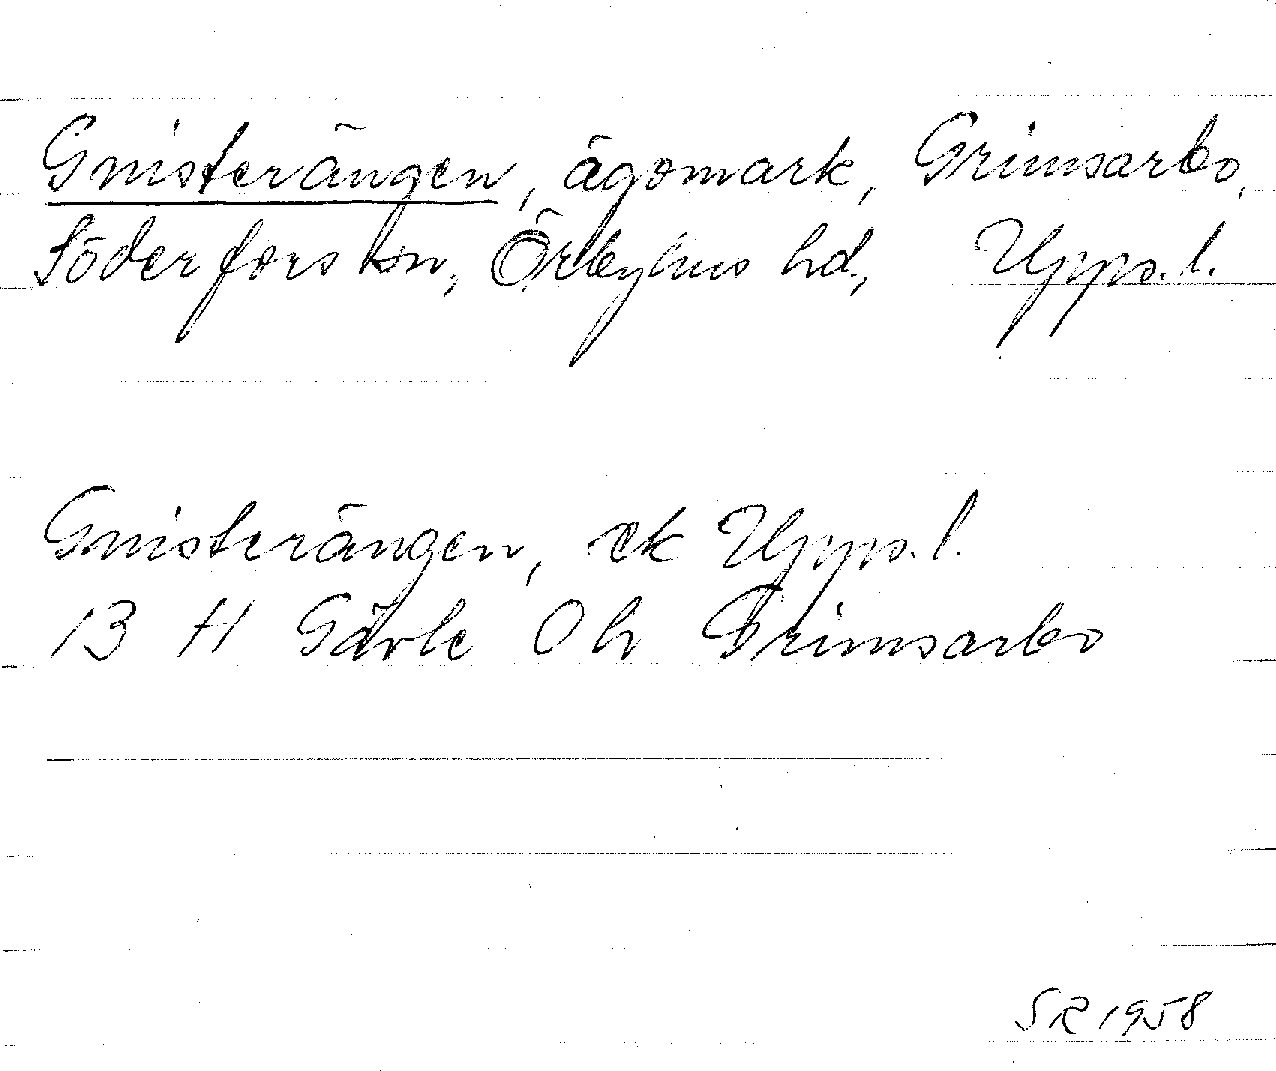 Gnisterängen, ägomark, Grimsarbo,
Söderfors sn, Örbyhus hd, Upps. l.
Gnisterängen, ek Upps. l.
13 H Gävle Ö h Grimsarbo
SR 1958